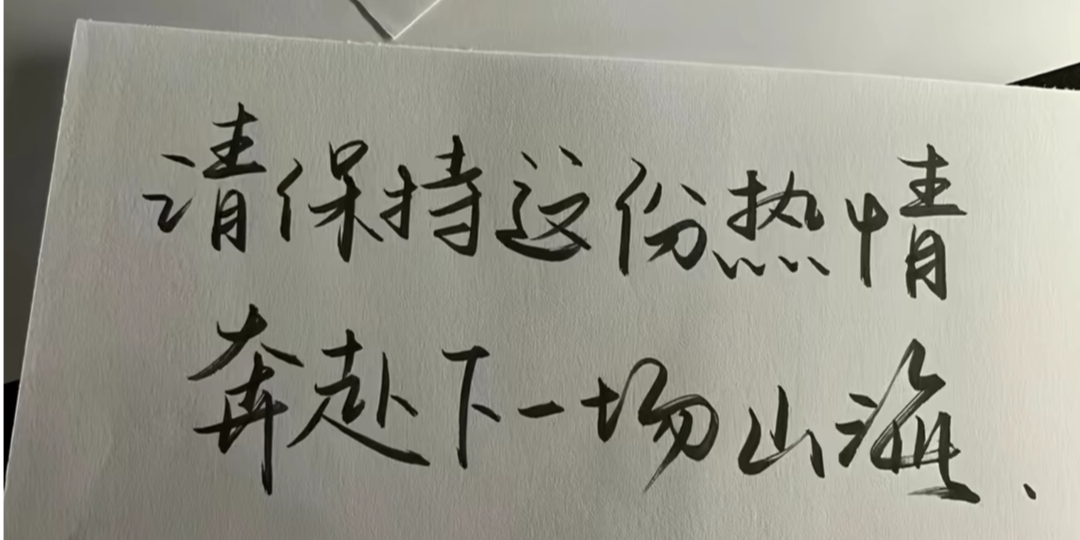 请保持这份热情
奔赴下一场山海.